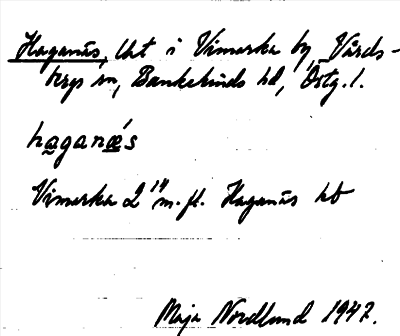 Haganäs, lht i Vimarka by, Vårds-
bergs sn, Bankekinds hd, Östg. l.
haganæ´s
Vimarka 2¹⁴ m. fl. Haganäs hb
Maja Nordlund 1947.